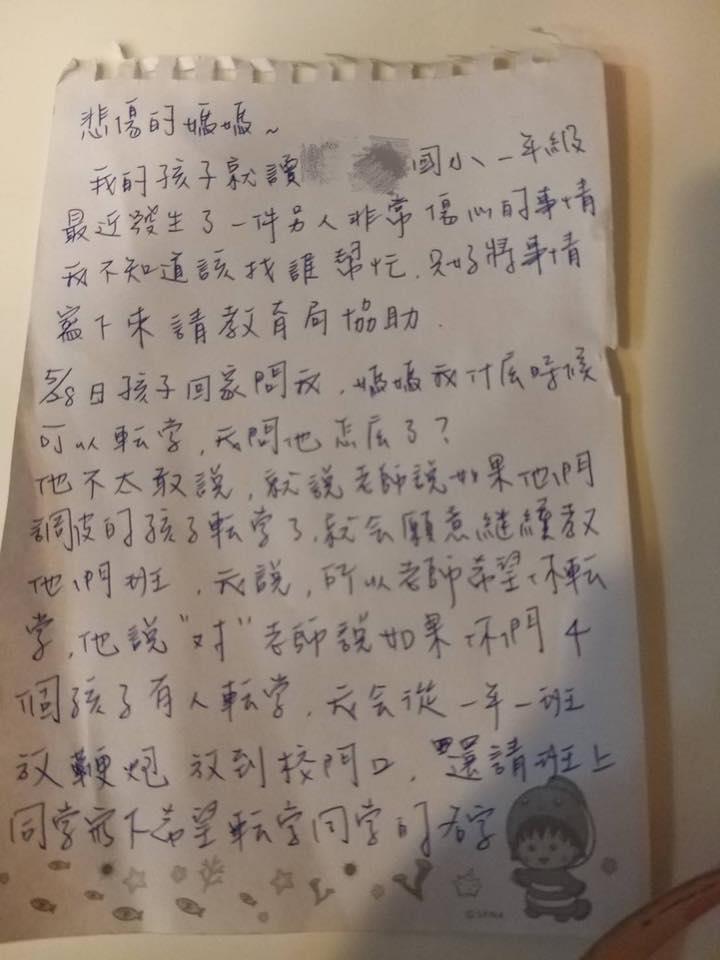 悲傷的媽媽~
我的孩子就讀 國小、一年級
最近發生了一件另人非常傷心的事情
我不知道該找誰幫忙,只好將事情
寫下來請教育局協助.
5/28日孩子回家問我,媽媽我什广時候
可以転学,我問他怎広了?
他不太敢說,就說老師說如果他們
調皮的孩子転学了,就会願意継續教
他們班,我說,所以老師希望你転
学,他說"对"老師說如果你們4
個孩子有人転学,我会從一年一班
放鞭炮放到校門口,還請班上
同学寫下希望転学同学的名字